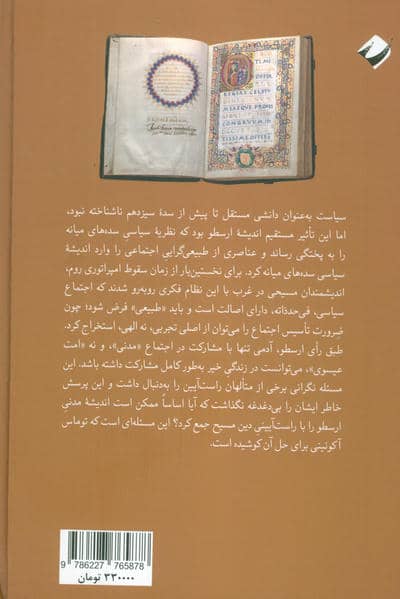 TIMI
REGIAS CELSIV
سیاست به‌عنوان دانشی مستقل تا پیش از سدهٔ سیزدهم ناشناخته نبود،
اما این تأثیر مستقیم اندیشهٔ ارسطو بود که نظریهٔ سیاسی سده‌های میانه
را به پختگی رساند و عناصری از طبیعی‌گرایی اجتماعی را وارد اندیشهٔ
سیاسی سده‌های میانه کرد. برای نخستین‌بار از زمان سقوط امپراتوری روم،
اندیشمندان مسیحی در غرب با این نظام فکری روبه‌رو شدند که اجتماع
سیاسی، فی‌حدذاته، دارای اصالت است و باید «طبیعی» فرض شود؛ چون
ضرورت تأسیس اجتماع را می‌توان از اصلی تجربی، نه الهی، استخراج کرد.
طبق رأی ارسطو، آدمی تنها با مشارکت در اجتماع «مدنی»، و نه «امت
عیسوی»، می‌توانست در زندگیِ خیر به‌طور کامل مشارکت داشته باشد. این
مسئله نگرانی برخی از متألهان راست‌آیین را به‌دنبال داشت و این پرسش
خاطر ایشان را بی‌دغدغه نگذاشت که آیا اساساً ممکن است اندیشهٔ مدنیِ
ارسطو را با راست‌آیینی دین مسیح جمع کرد؟ این مسئله‌ای است که توماس
آکوئینی برای حل آن کوشیده است.
9 786227 765878
۳۳۰۰۰۰ تومان